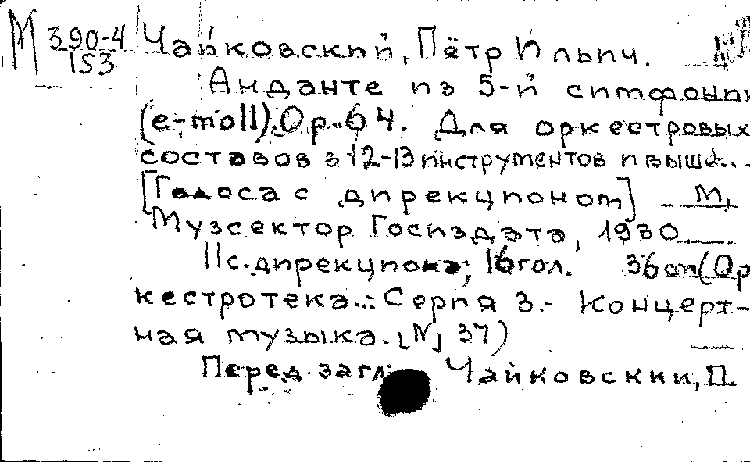 М 390-4 Чайковский, Пётр Ильич.
153
Анданте из 5-й симфонии
(e-moll). Op. 64. Для оркестровых
составов в 12-13 инструментов и выше...
[Голоса с дирекционом] М.,
Музсектор Госиздата, 1930
11 с. дирекциона; 16 гол. 36 см (Ор
кестротека... Серия 3.- Концерт-
ная музыка. [№ 37)
Перед загл: Чайковский, П.